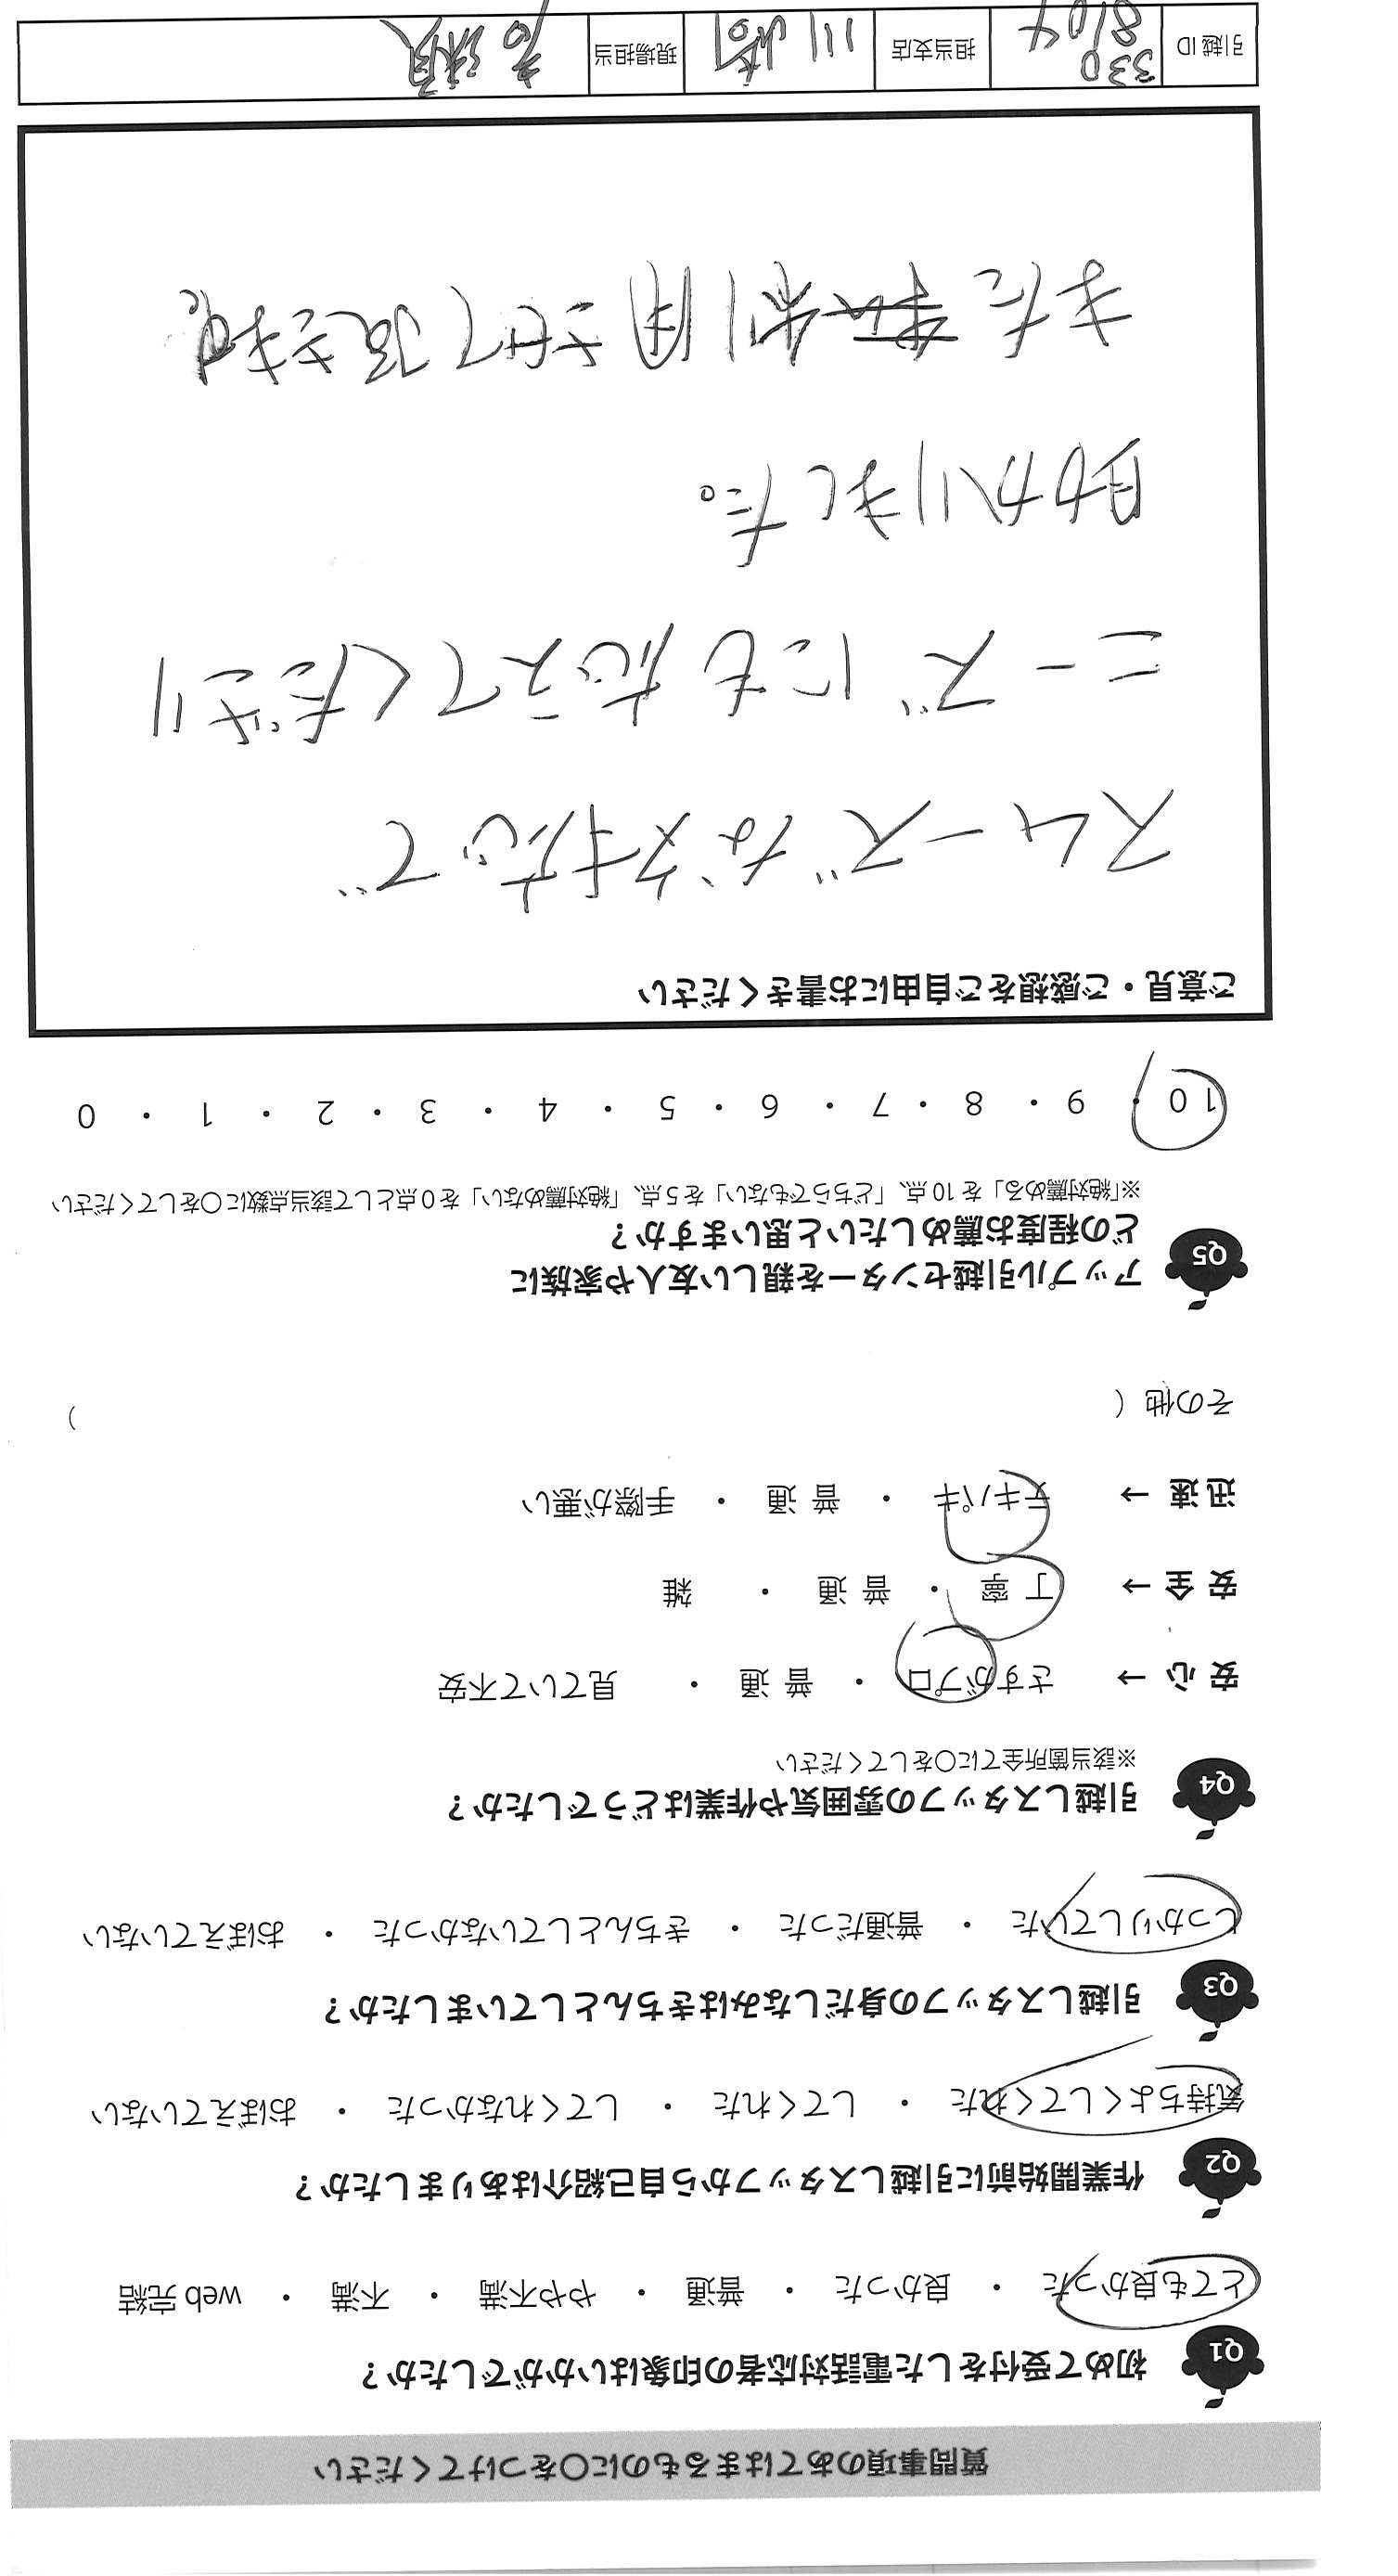 質問事項のあてはまるものに○をつけてください
Q1 初めて受付をした電話対応者の印象はいかがでしたか？
とても良かった ・ 良かった ・ 普通 ・ やや不満 ・ 不満 ・ web 完結
Q2 作業開始前に引越しスタッフから自己紹介はありましたか？
気持ちよくしてくれた ・ してくれた ・ してくれなかった ・ おぼえていない
Q3 引越しスタッフの身だしなみはきちんとしていましたか？
しっかりしていた ・ 普通だった ・ きちんとしていなかった ・ おぼえていない
Q4 引越しスタッフの雰囲気や作業はどうでしたか？
※該当箇所全てに○をしてください
安 心 → さすがプロ ・ 普 通 ・ 見ていて不安
安 全 → 丁 寧 ・ 普 通 ・ 雑
迅 速 → テキパキ ・ 普 通 ・ 手際が悪い
その他（ ）
Q5 アップル引越センターを親しい友人や家族に
どの程度お薦めしたいと思いますか？
※「絶対薦める」を 10 点、「どちらでもない」を 5 点、「絶対薦めない」を 0 点として該当点数に○をしてください
10 ・ 9 ・ 8 ・ 7 ・ 6 ・ 5 ・ 4 ・ 3 ・ 2 ・ 1 ・ 0
ご意見・ご感想をご自由にお書きください
スムーズな対応で
ニーズにも応えてくださり
助かりました。
また利用させて頂きます。
引越 ID 330 8104 担当支店 川崎 現場担当 高瀬